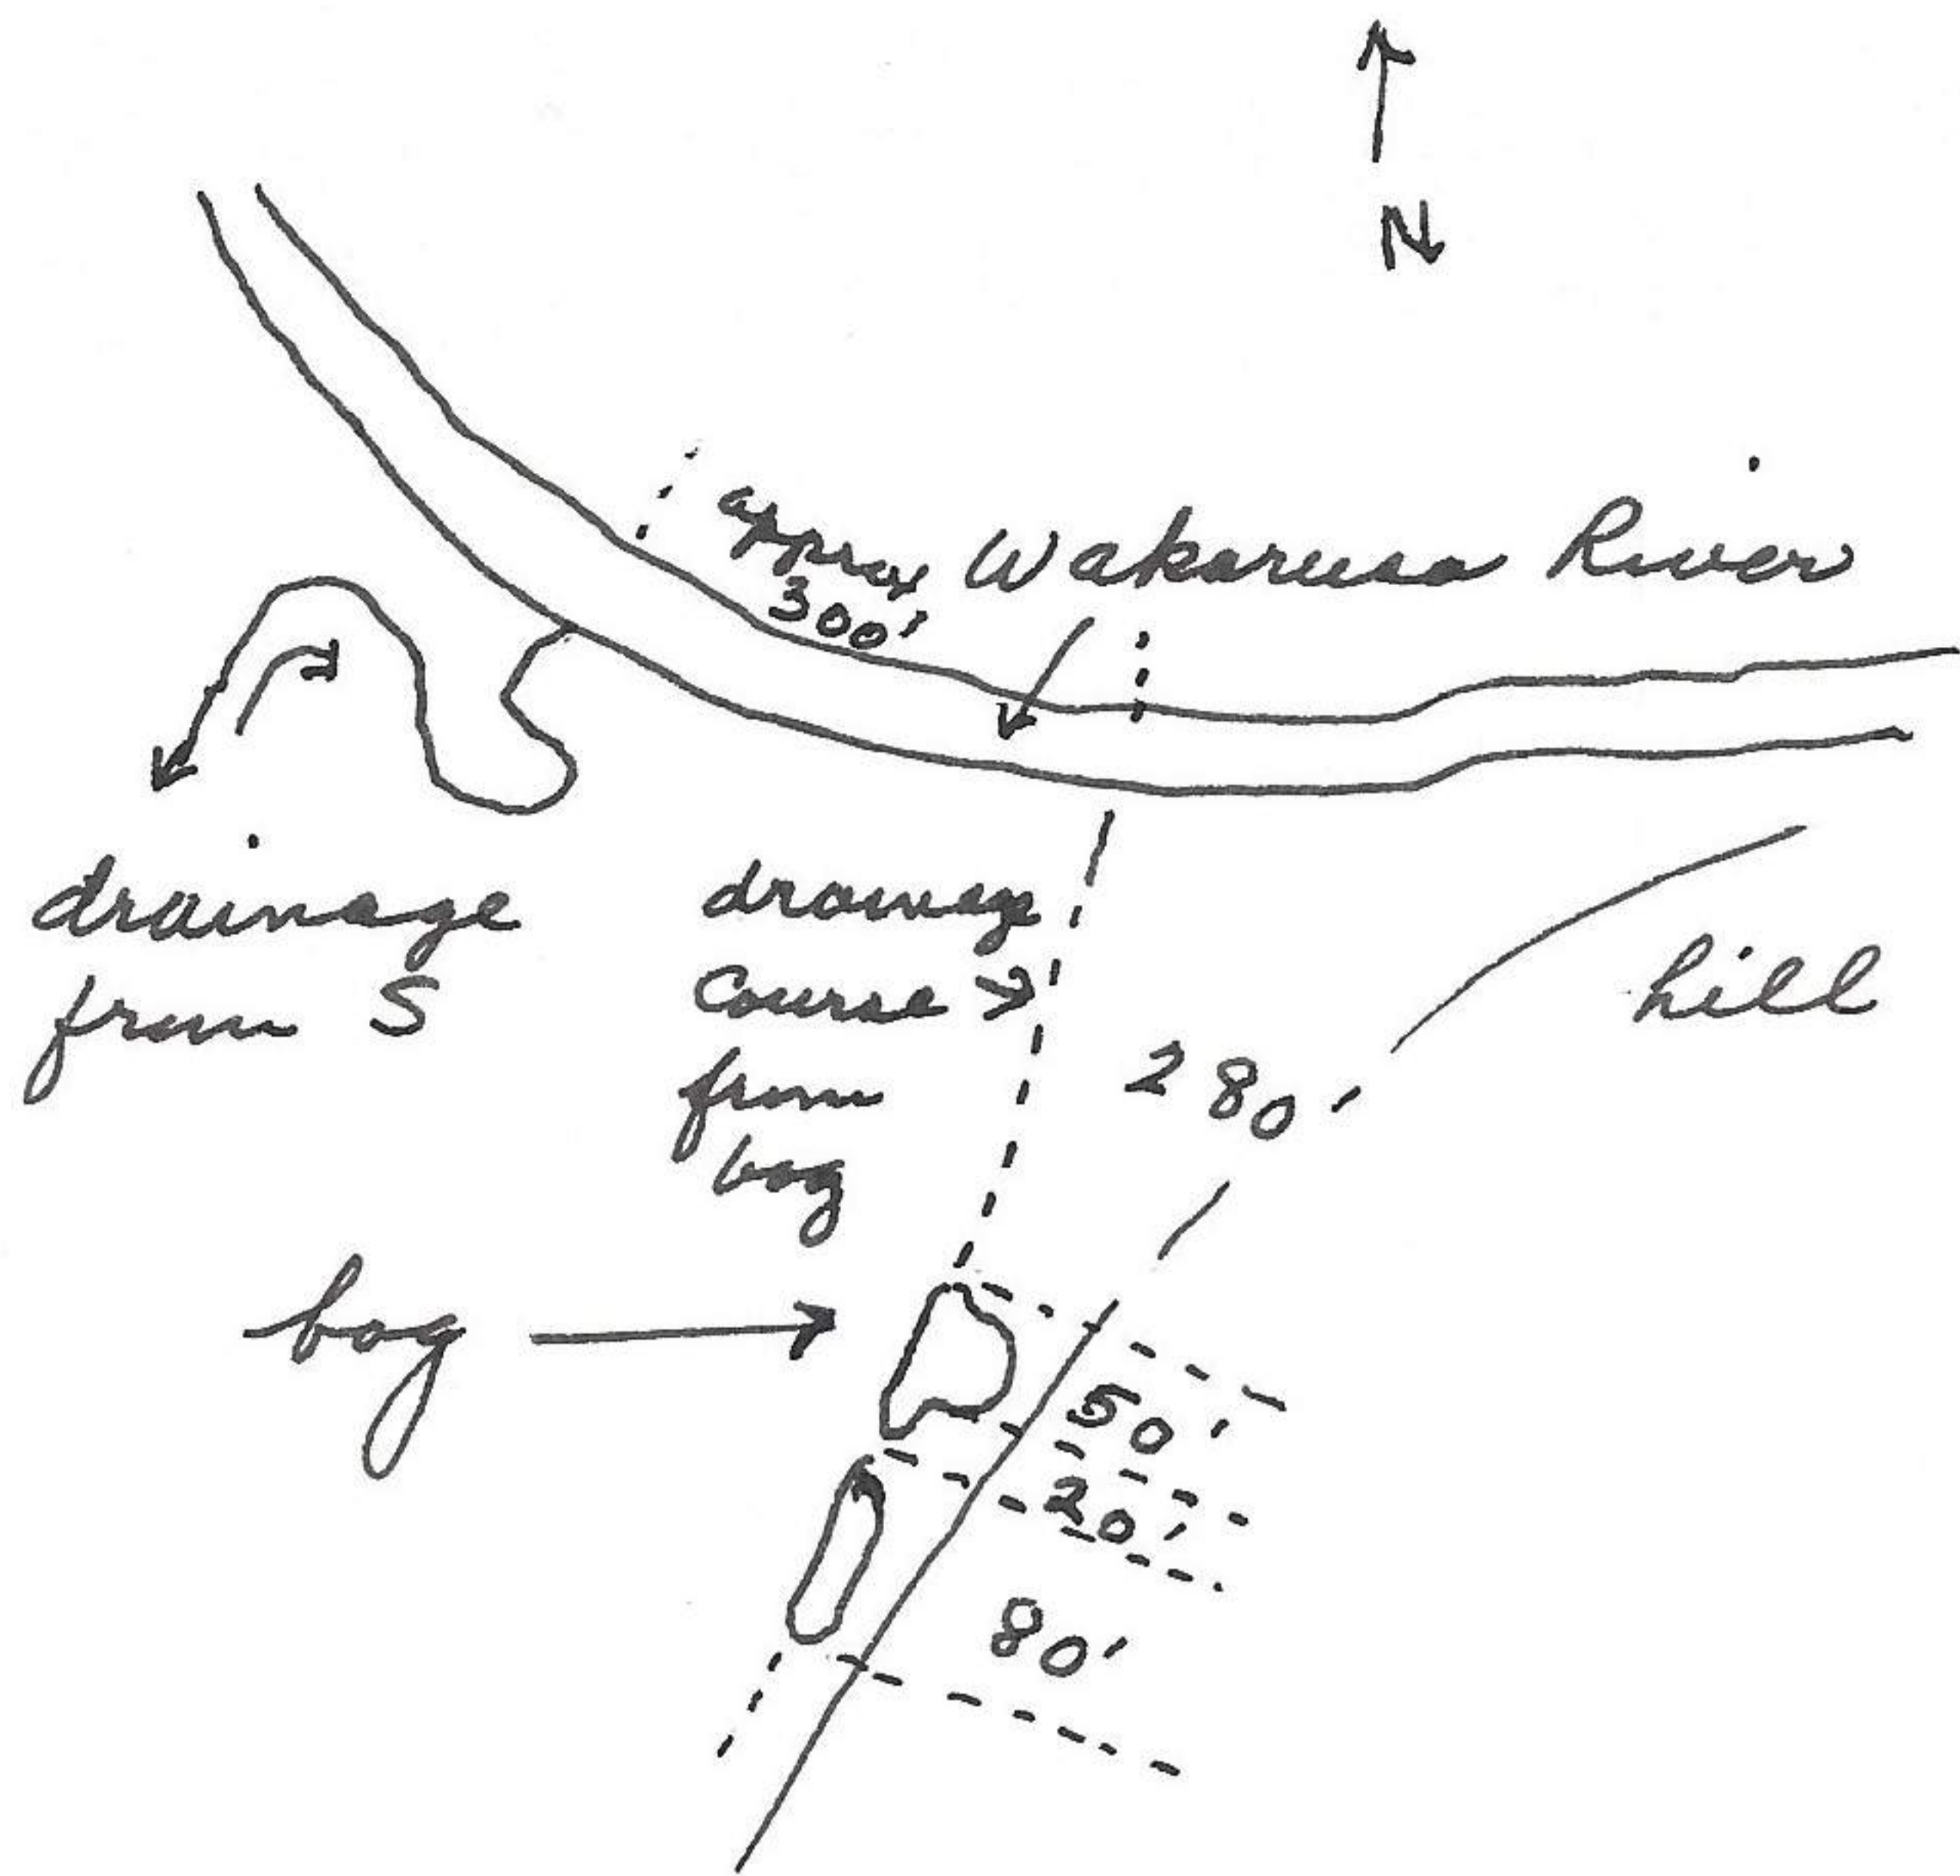 N
approx
300'
Wakarusa River
drainage
from S
drainage
course
from
bog
hill
280'
bog
50'
20'
80'